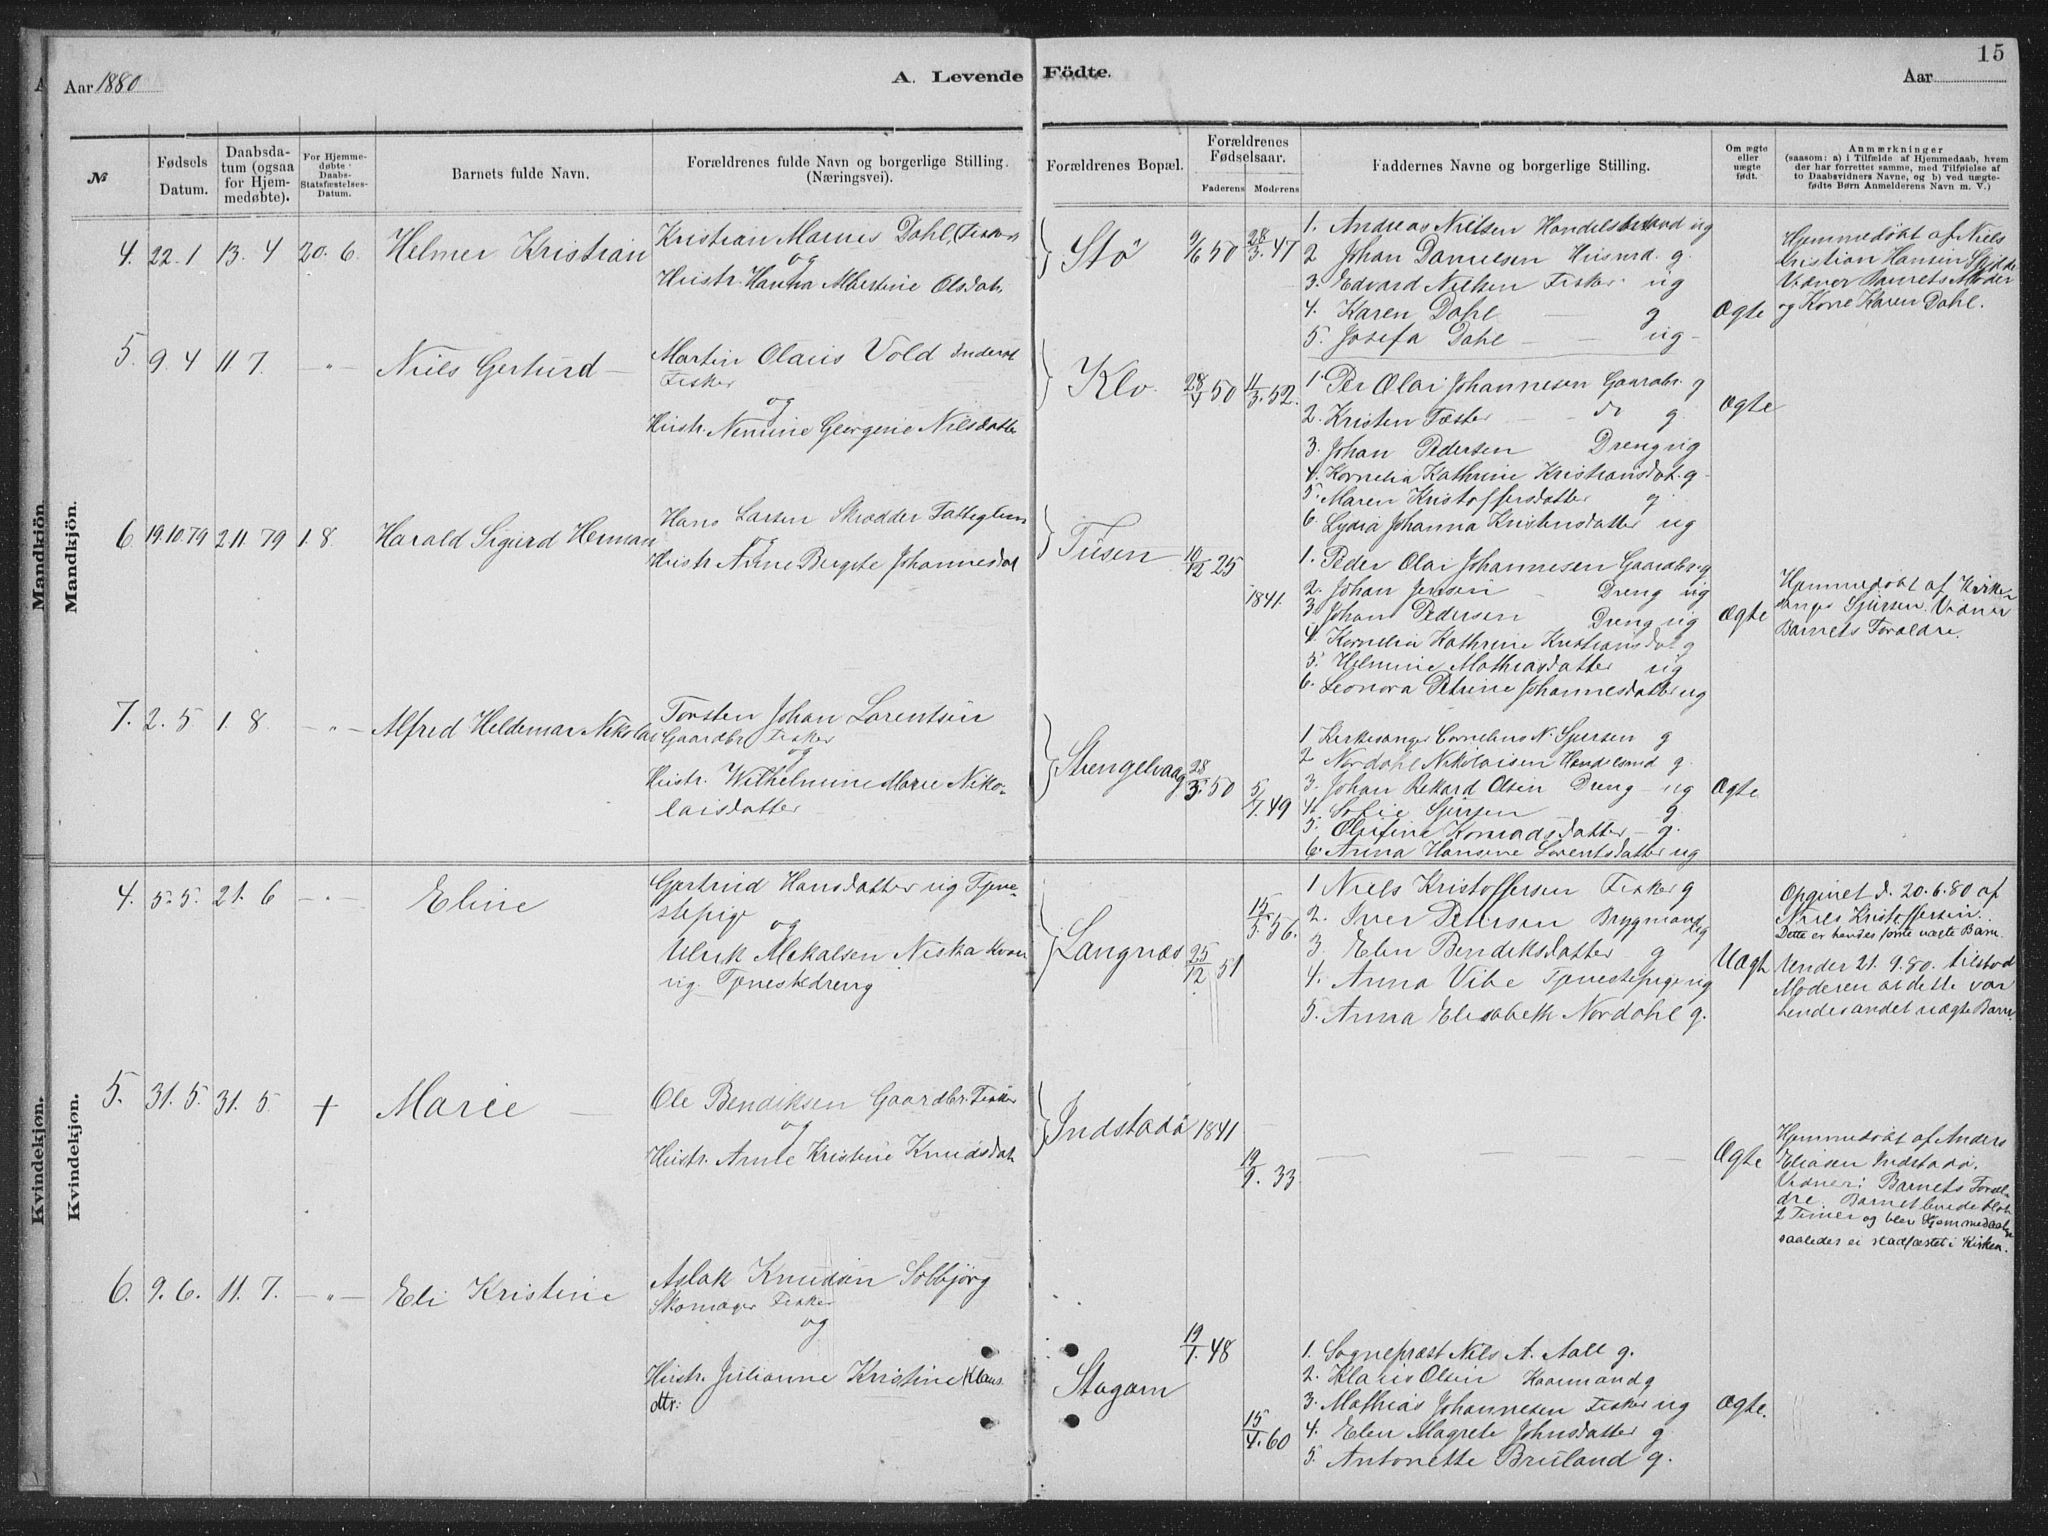 15
Aar 1880
A. Levende Födte.
Aar
№
Fødsels Datum.
Daabsda-
tum (ogsaa
for Hjem-
medøbte).
For Hjemme-
døbte
Daabs-
Statsfæstelses-
Datum.
Barnets fulde Navn.
Forældrenes fulde Navn og borgerlige Stilling.
(Næringsvei).
Forældrenes Bopæl.
Forældrenes
Fødselsaar.
Faderens
Moderens
Faddernes Navne og borgerlige Stilling.
Om ægte
eller
uægte
født.
Anmærkninger
(saasom: a) i Tilfælde af Hjemmedaab, hvem
der har forrettet samme, med Tilføielse af
to Daabsvidners Navne, og b) ved uægte-
fødte Børn Anmelderens Navn m. V.)
Mandkjön.
Mandkjön.
4. 22. 1 13. 4 20. 6. Helmer Kristian
Kristian Marnes Dahl, Fisker
og
Hustr. Hanna Albertine Olsdat.
Stø 9/6 50 28/3. 47
1. Andreas Nielsen ug
2 Johan Danielsen Husmd. g.
3. Edvard Nielsen Fisker ug
4. Karen Dahl — g
5. Josefa Dahl — — ug
Ægte
Hjemmedøbt af Niels
Kristian Hansen
Vidner Barnets Moder
og Kone Karen Dahl.
5. 9. 4 11 7. — " — Niels Gerturd —
Martin Olaus Vold Inderst
Fisker
og
Hustr. Nemine Georgine Nilsdatter
Klo. 28/4 50 11/3. 52.
1. Per Olai Johannesen Gaardbr. g
2. Kristen Fæster — do g.
3. Johan Pedersen Dreng ug
4. Kornelia Kathrine Kristiansdat. g
5. Maren Kristoffersdatter g.
6. Lydia Johanna Kristensdatter ug
Ægte
6. 19. 10. 79 2. 11. 79 1. 8. Harald Sigurd Herman
Hans Larsen Skrædder Fattiglem
og
Hustr. Anne Birgite Johannesdat
Tusen 10/12 25
1841.
1. Peder Olai Johannesen Gaardbr. g
2. Johan Jensen — Dreng ug
3. Johan Pedersen Dreng ug
4. Kornelia Kathrine Kristiansdat g
5. Helmine Mathiasdatter ug
6. Leonora Petrine Johannesdatter ug
Ægte
Hjemmedøbt af Kirke-
sanger Sjursen. Vidner
Barnets Forældre.
7. 2. 5 1. 8. — " — Alfred Heldemar Nikolai
Torsten Johan Lorentsen
Gaardbr. Fisker
og
Hustr. Wilhelmine Marie Niko-
laisdatter
Strengelvaag 28/3. 50 5/7. 49
1 Kirkesanger Cornelius N. Sjursen g
2 Nordahl Nikolaisen Handelsmd g.
3. Johan Rekard Olsen Dreng — ug
4. Sofie Sjursen — g.
5. Olufine Konradsdatter — g.
6. Anna Hansine Lorentsdatter ug
Ægte
Kvindekjøn.
Kvindekjøn.
4. 5. 5. 21. 6 — " — Eline
Gjertrud Hansdatter ug Tjene-
stepige
og
Ulrik Mekalsen Niska Kvæn
ug. Tjenestedreng
Langnæs 25/12 51 15/5. 56.
1 Niels Kristoffersen Fisker g
2. Iver Petersen Brygmand ug
3. Elen Bendiksdatter g
4. Anna Vibe Tjenestepige ug
5. Anna Elisabeth Nordahl g.
Uægt
Opgivet d. 20. 6. 80 af
Niels Kristoffersen.
Dette er hendes første uægte Barn.
Under 21. 9. 80. tilstod
Moderen at dette var
hendes andet uægte Barn.
5. 31. 5. 31. 5 + Marie —
Ole Bendiksen Gaardbr. Fisker
og
Hustr. Anne Kristine Knudsdat.
Indstadø 1841
19/9. 33
— — — —
Ægte
Hjemmedøbt af Anders
Eliasen Indstadø.
Vidner: Barnets Foræl-
dre. Barnet levede blot
2 Timer og blev Hjemmedaaben
saaledes ei stadfæstet i Kirken.
6. 9. 6. 11. 7. — " — Eli Kristine
Aslak Knudsen Solbjörg
Skomager Fisker
og
Hustr. Julianne Kristine Klaus
dtr.
Stagarn 19/1. 48
15/4. 60
1. Sogneprest Nils A. Aall g.
2. Klaus Olsen Kaarmand g
3. Mathias Johannesen Fisker ug
4. Elen Magrete Johnsdatter g
5. Antonette Bruland g.
Ægte.